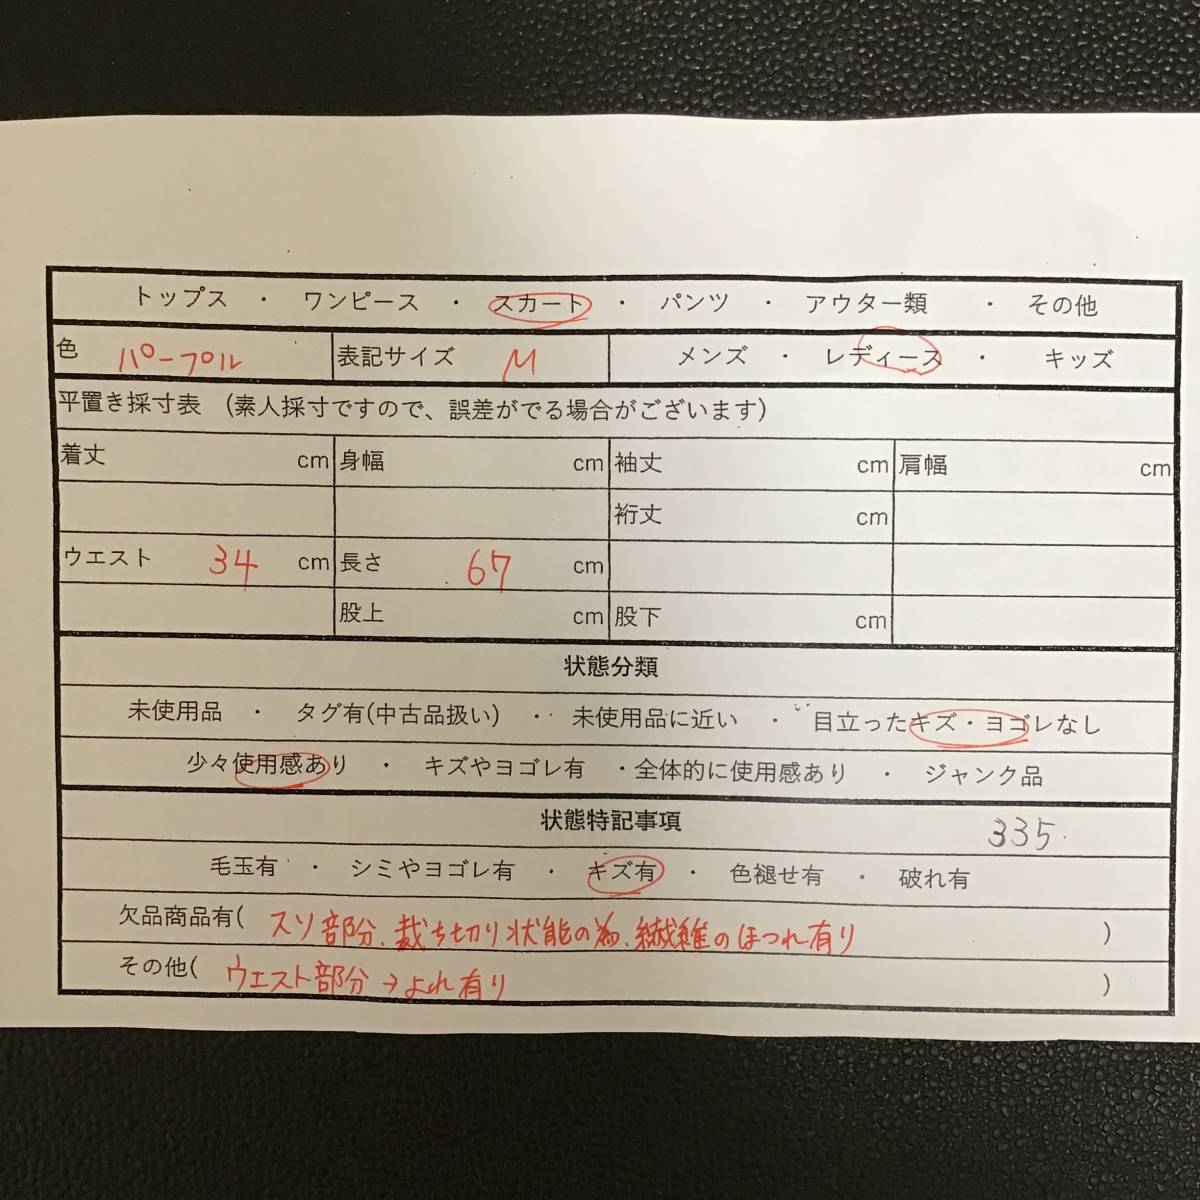 トップス ・ ワンピース ・ スカート ・ パンツ ・ アウター類 ・ その他
色 パープル 表記サイズ M メンズ ・ レディース ・ キッズ
平置き採寸表 (素人採寸ですので、誤差がでる場合がございます)
着丈 cm 身幅 cm 袖丈 cm 肩幅 cm
裄丈 cm
ウエスト 34 cm 長さ 67 cm
股上 cm 股下 cm
状態分類
未使用品 ・ タグ有(中古品扱い) ・ 未使用品に近い ・ 目立ったキズ・ヨゴレなし
少々使用感あり ・ キズやヨゴレ有 ・全体的に使用感あり ・ ジャンク品
状態特記事項 335
毛玉有 ・ シミやヨゴレ有 ・ キズ有 ・ 色褪せ有 ・ 破れ有
欠品商品有( スソ部分、裁ち切り状態の為、繊維のほつれ有り )
その他( ウエスト部分→よれ有り )